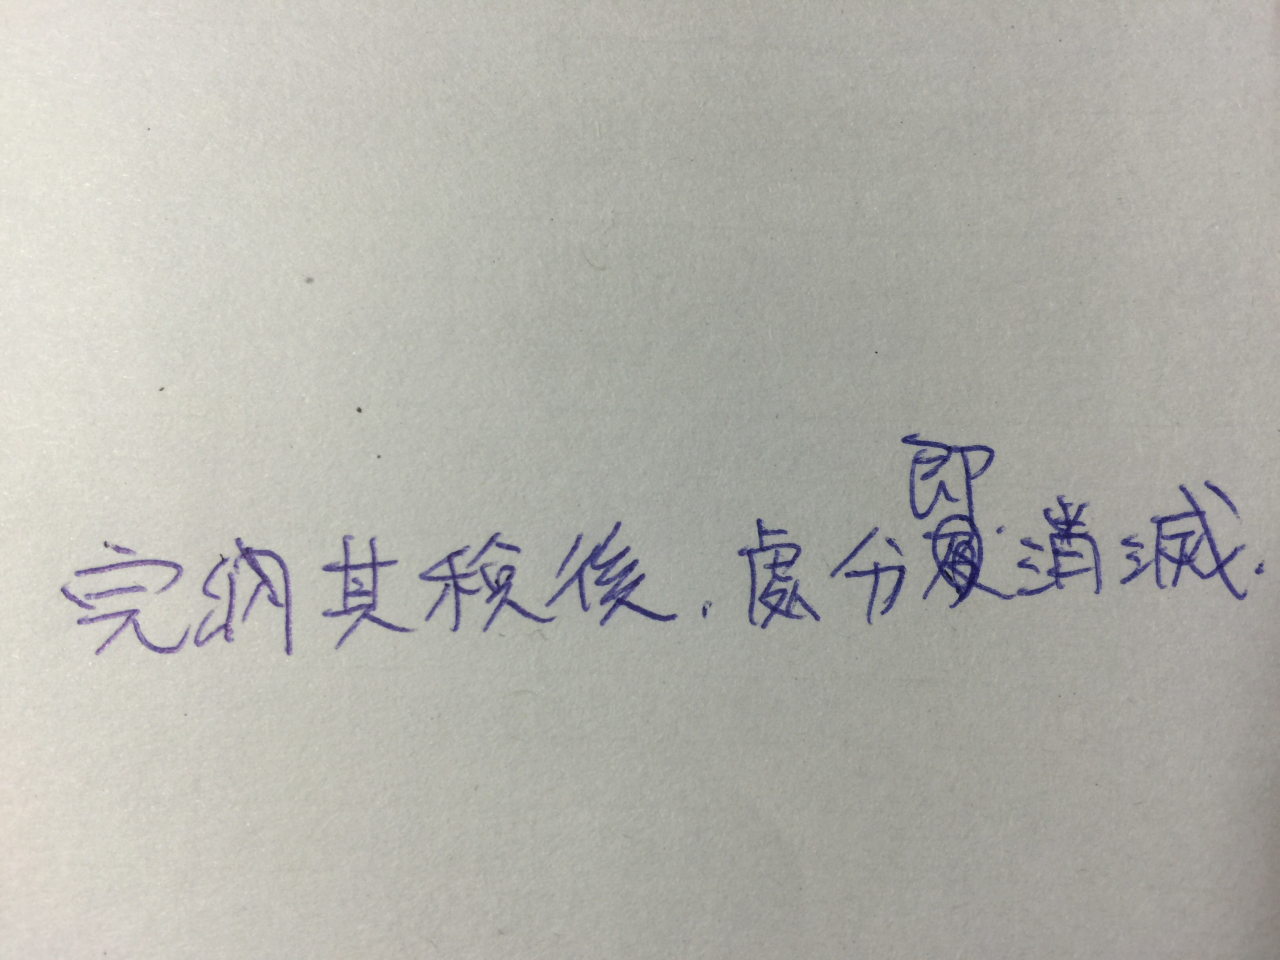 完納其稅後.處分即消滅.